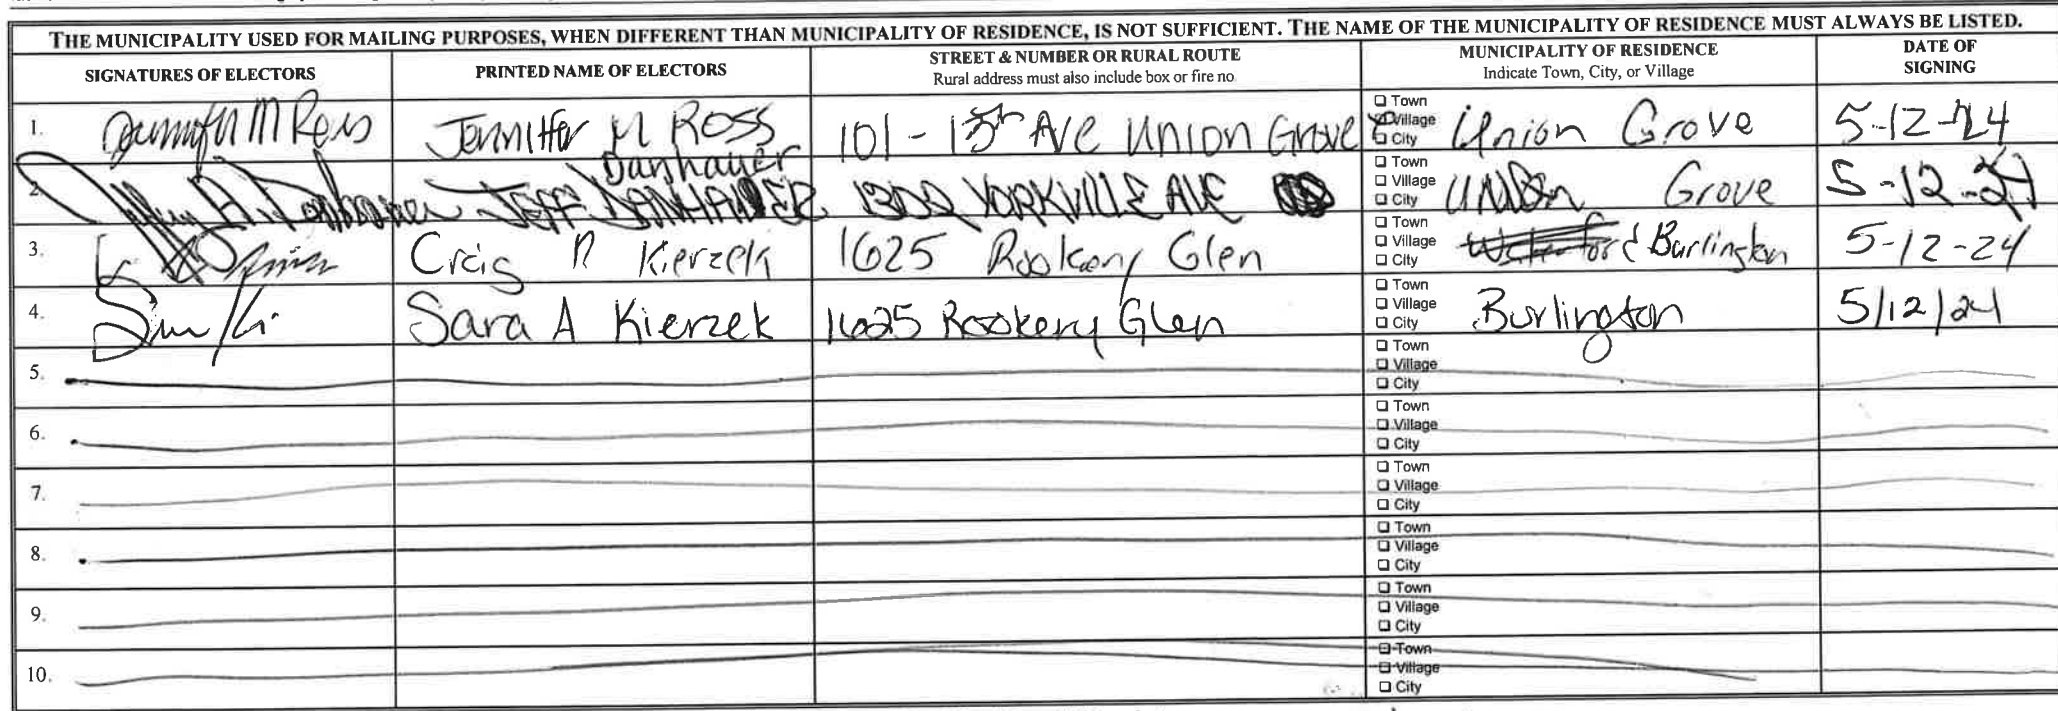 THE MUNICIPALITY USED FOR MAILING PURPOSES, WHEN DIFFERENT THAN MUNICIPALITY OF RESIDENCE, IS NOT SUFFICIENT. THE NAME OF THE MUNICIPALITY OF RESIDENCE MUST ALWAYS BE LISTED.
SIGNATURES OF ELECTORS
PRINTED NAME OF ELECTORS
STREET & NUMBER OR RURAL ROUTE
Rural address must also include box or fire no.
MUNICIPALITY OF RESIDENCE
Indicate Town, City, or Village
DATE OF
SIGNING
1. Jennifer M Ross Jennifer M Ross 101 - 13th Ave Union Grove Union Grove 5-12-24
Town
Village
City
Danhauer
2. JEFF DANHAUER 1302 YORKVILLE AVE UNION Grove 5-12-24
Town
Village
City
3. Craig R Kierzek 1625 Rookery Glen Burlington 5-12-24
Town
Village
City
4. Sara A Kierzek 1625 Rookery Glen Burlington 5/12/24
Town
Village
City
5.
Town
Village
City
6.
Town
Village
City
7.
Town
Village
City
8.
Town
Village
City
9.
Town
Village
City
10.
Town
Village
City